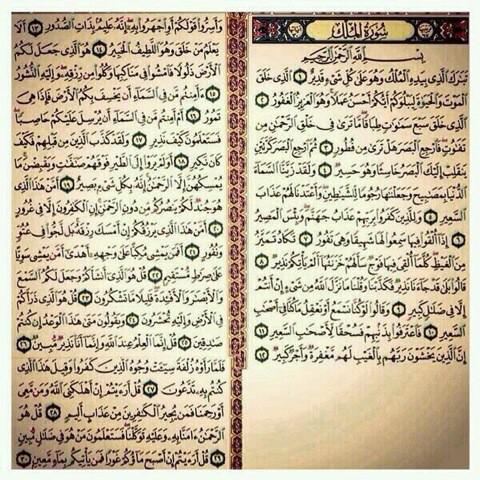 سُورَةُ المُلْكِ
بِسْمِ اللَّهِ الرَّحْمَٰنِ الرَّحِيمِ
تَبَٰرَكَ ٱلَّذِى بِيَدِهِ ٱلْمُلْكُ وَهُوَ عَلَىٰ كُلِّ شَىْءٍ قَدِيرٌ ١ ٱلَّذِى خَلَقَ
ٱلْمَوْتَ وَٱلْحَيَوٰةَ لِيَبْلُوَكُمْ أَيُّكُمْ أَحْسَنُ عَمَلًا وَهُوَ ٱلْعَزِيزُ ٱلْغَفُورُ ٢
ٱلَّذِى خَلَقَ سَبْعَ سَمَٰوَٰتٍ طِبَاقًا مَّا تَرَىٰ فِى خَلْقِ ٱلرَّحْمَٰنِ مِن
تَفَٰوُتٍ فَٱرْجِعِ ٱلْبَصَرَ هَلْ تَرَىٰ مِن فُطُورٍ ٣ ثُمَّ ٱرْجِعِ ٱلْبَصَرَ كَرَّتَيْنِ
يَنقَلِبْ إِلَيْكَ ٱلْبَصَرُ خَاسِئًا وَهُوَ حَسِيرٌ ٤ وَلَقَدْ زَيَّنَّا ٱلسَّمَآءَ
ٱلدُّنْيَا بِمَصَٰبِيحَ وَجَعَلْنَٰهَا رُجُومًا لِّلشَّيَٰطِينِ وَأَعْتَدْنَا لَهُمْ عَذَابَ
ٱلسَّعِيرِ ٥ وَلِلَّذِينَ كَفَرُوا۟ بِرَبِّهِمْ عَذَابُ جَهَنَّمَ وَبِئْسَ ٱلْمَصِيرُ
٦ إِذَآ أُلْقُوا۟ فِيهَا سَمِعُوا۟ لَهَا شَهِيقًا وَهِىَ تَفُورُ ٧ تَكَادُ تَمَيَّزُ
مِنَ ٱلْغَيْظِ كُلَّمَآ أُلْقِىَ فِيهَا فَوْجٌ سَأَلَهُمْ خَزَنَتُهَآ أَلَمْ يَأْتِكُمْ نَذِيرٌ ٨
قَالُوا۟ بَلَىٰ قَدْ جَآءَنَا نَذِيرٌ فَكَذَّبْنَا وَقُلْنَا مَا نَزَّلَ ٱللَّهُ مِن شَىْءٍ إِنْ أَنتُمْ
إِلَّا فِى ضَلَٰلٍ كَبِيرٍ ٩ وَقَالُوا۟ لَوْ كُنَّا نَسْمَعُ أَوْ نَعْقِلُ مَا كُنَّا فِىٓ أَصْحَٰبِ
ٱلسَّعِيرِ ١٠ فَٱعْتَرَفُوا۟ بِذَنۢبِهِمْ فَسُحْقًا لِّأَصْحَٰبِ ٱلسَّعِيرِ ١١
إِنَّ ٱلَّذِينَ يَخْشَوْنَ رَبَّهُم بِٱلْغَيْبِ لَهُم مَّغْفِرَةٌ وَأَجْرٌ كَبِيرٌ ١٢
وَأَسِرُّوا۟ قَوْلَكُمْ أَوِ ٱجْهَرُوا۟ بِهِۦٓ إِنَّهُۥ عَلِيمٌۢ بِذَاتِ ٱلصُّدُورِ ١٣ أَلَا
يَعْلَمُ مَنْ خَلَقَ وَهُوَ ٱللَّطِيفُ ٱلْخَبِيرُ ١٤ هُوَ ٱلَّذِى جَعَلَ لَكُمُ
ٱلْأَرْضَ ذَلُولًا فَٱمْشُوا۟ فِى مَنَاكِبِهَا وَكُلُوا۟ مِن رِّزْقِهِۦ وَإِلَيْهِ ٱلنُّشُورُ
١٥ ءَأَمِنتُم مَّن فِى ٱلسَّمَآءِ أَن يَخْسِفَ بِكُمُ ٱلْأَرْضَ فَإِذَا هِىَ
تَمُورُ ١٦ أَمْ أَمِنتُم مَّن فِى ٱلسَّمَآءِ أَن يُرْسِلَ عَلَيْكُمْ حَاصِبًا
فَسَتَعْلَمُونَ كَيْفَ نَذِيرِ ١٧ وَلَقَدْ كَذَّبَ ٱلَّذِينَ مِن قَبْلِهِمْ فَكَيْفَ
كَانَ نَكِيرِ ١٨ أَوَلَمْ يَرَوْا۟ إِلَى ٱلطَّيْرِ فَوْقَهُمْ صَٰٓفَّٰتٍ وَيَقْبِضْنَ مَا
يُمْسِكُهُنَّ إِلَّا ٱلرَّحْمَٰنُ إِنَّهُۥ بِكُلِّ شَىْءٍۭ بَصِيرٌ ١٩ أَمَّنْ هَٰذَا ٱلَّذِى
هُوَ جُندٌ لَّكُمْ يَنصُرُكُم مِّن دُونِ ٱلرَّحْمَٰنِ إِنِ ٱلْكَٰفِرُونَ إِلَّا فِى غُرُورٍ
٢٠ أَمَّنْ هَٰذَا ٱلَّذِى يَرْزُقُكُمْ إِنْ أَمْسَكَ رِزْقَهُۥ بَل لَّجُّوا۟ فِى عُتُوٍّ
وَنُفُورٍ ٢١ أَفَمَن يَمْشِى مُكِبًّا عَلَىٰ وَجْهِهِۦٓ أَهْدَىٰٓ أَمَّن يَمْشِى سَوِيًّا
عَلَىٰ صِرَٰطٍ مُّسْتَقِيمٍ ٢٢ قُلْ هُوَ ٱلَّذِىٓ أَنشَأَكُمْ وَجَعَلَ لَكُمُ ٱلسَّمْعَ
وَٱلْأَبْصَٰرَ وَٱلْأَفْـِٔدَةَ قَلِيلًا مَّا تَشْكُرُونَ ٢٣ قُلْ هُوَ ٱلَّذِى ذَرَأَكُمْ
فِى ٱلْأَرْضِ وَإِلَيْهِ تُحْشَرُونَ ٢٤ وَيَقُولُونَ مَتَىٰ هَٰذَا ٱلْوَعْدُ إِن كُنتُمْ
صَٰدِقِينَ ٢٥ قُلْ إِنَّمَا ٱلْعِلْمُ عِندَ ٱللَّهِ وَإِنَّمَآ أَنَا۠ نَذِيرٌ مُّبِينٌ ٢٦
فَلَمَّا رَأَوْهُ زُلْفَةً سِيٓـَٔتْ وُجُوهُ ٱلَّذِينَ كَفَرُوا۟ وَقِيلَ هَٰذَا ٱلَّذِى
كُنتُم بِهِۦ تَدَّعُونَ ٢٧ قُلْ أَرَءَيْتُمْ إِنْ أَهْلَكَنِىَ ٱللَّهُ وَمَن مَّعِىَ
أَوْ رَحِمَنَا فَمَن يُجِيرُ ٱلْكَٰفِرِينَ مِنْ عَذَابٍ أَلِيمٍ ٢٨ قُلْ هُوَ
ٱلرَّحْمَٰنُ ءَامَنَّا بِهِۦ وَعَلَيْهِ تَوَكَّلْنَا فَسَتَعْلَمُونَ مَنْ هُوَ فِى ضَلَٰلٍ مُّبِينٍ
٢٩ قُلْ أَرَءَيْتُمْ إِنْ أَصْبَحَ مَآؤُكُمْ غَوْرًا فَمَن يَأْتِيكُم بِمَآءٍ مَّعِينٍۭ ٣٠